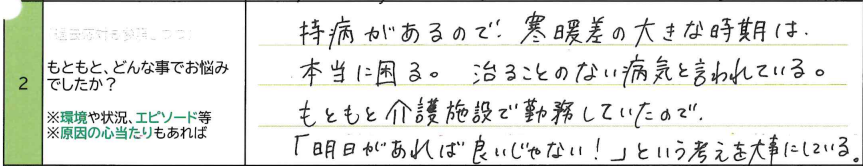 2
もともと、どんな事でお悩み
でしたか?
※環境や状況、エピソード等
※原因の心当たりもあれば
持病があるので、寒暖差の大きな時期は、
本当に困る。 治ることのない病気と言われている。
もともと介護施設で勤務していたので、
「明日があれば良いじゃない!」という考えを大事にしている。